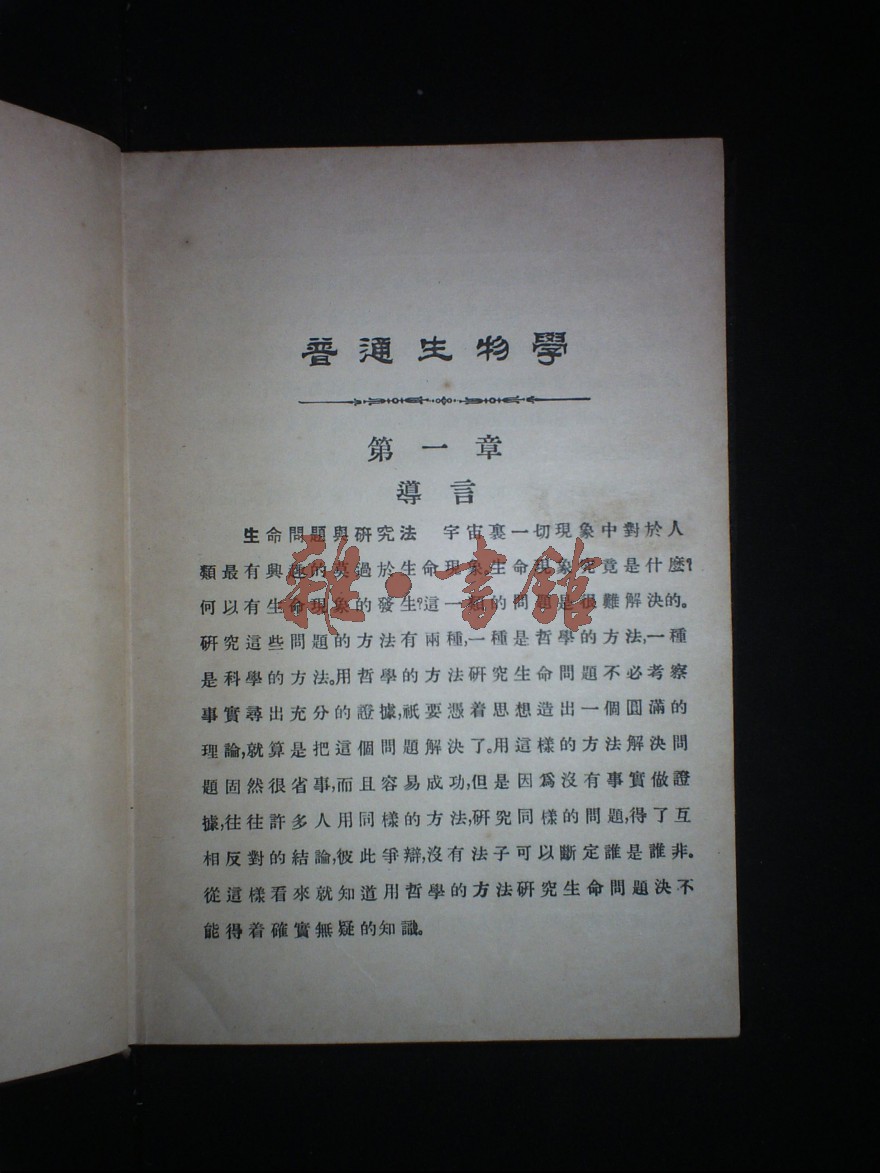 普通生物學
第一章
導言
生命問題與研究法　宇宙裏一切現象中對於人
類最有興趣的莫過於生命現象。生命現象究竟是什麼?
何以有生命現象的發生?這一類的問題是很難解決的。
研究這些問題的方法有兩種,一種是哲學的方法,一種
是科學的方法。用哲學的方法研究生命問題不必考察
事實尋出充分的證據,祇要憑着思想造出一個圓滿的
理論,就算是把這個問題解決了。用這樣的方法解決問
題固然很省事,而且容易成功,但是因爲沒有事實做證
據,往往許多人用同樣的方法,研究同樣的問題,得了互
相反對的結論,彼此爭辯,沒有法子可以斷定誰是誰非。
從這樣看來就知道用哲學的方法研究生命問題決不
能得着確實無疑的知識。
雜·書館